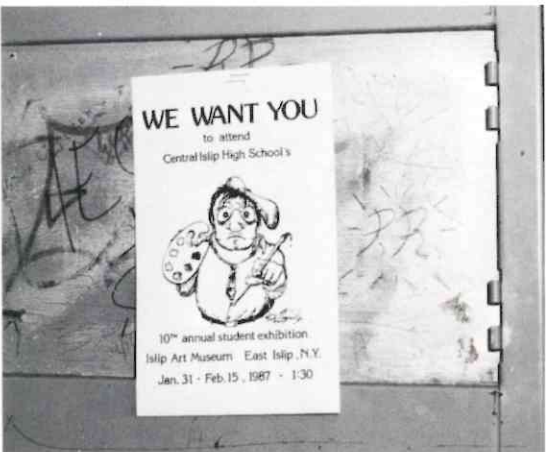 WE WANT YOU
to attend
Central Islip High School's
10TH annual student exhibition
Islip Art Museum East Islip, N.Y.
Jan. 31 - Feb. 15, 1987 - 1:30